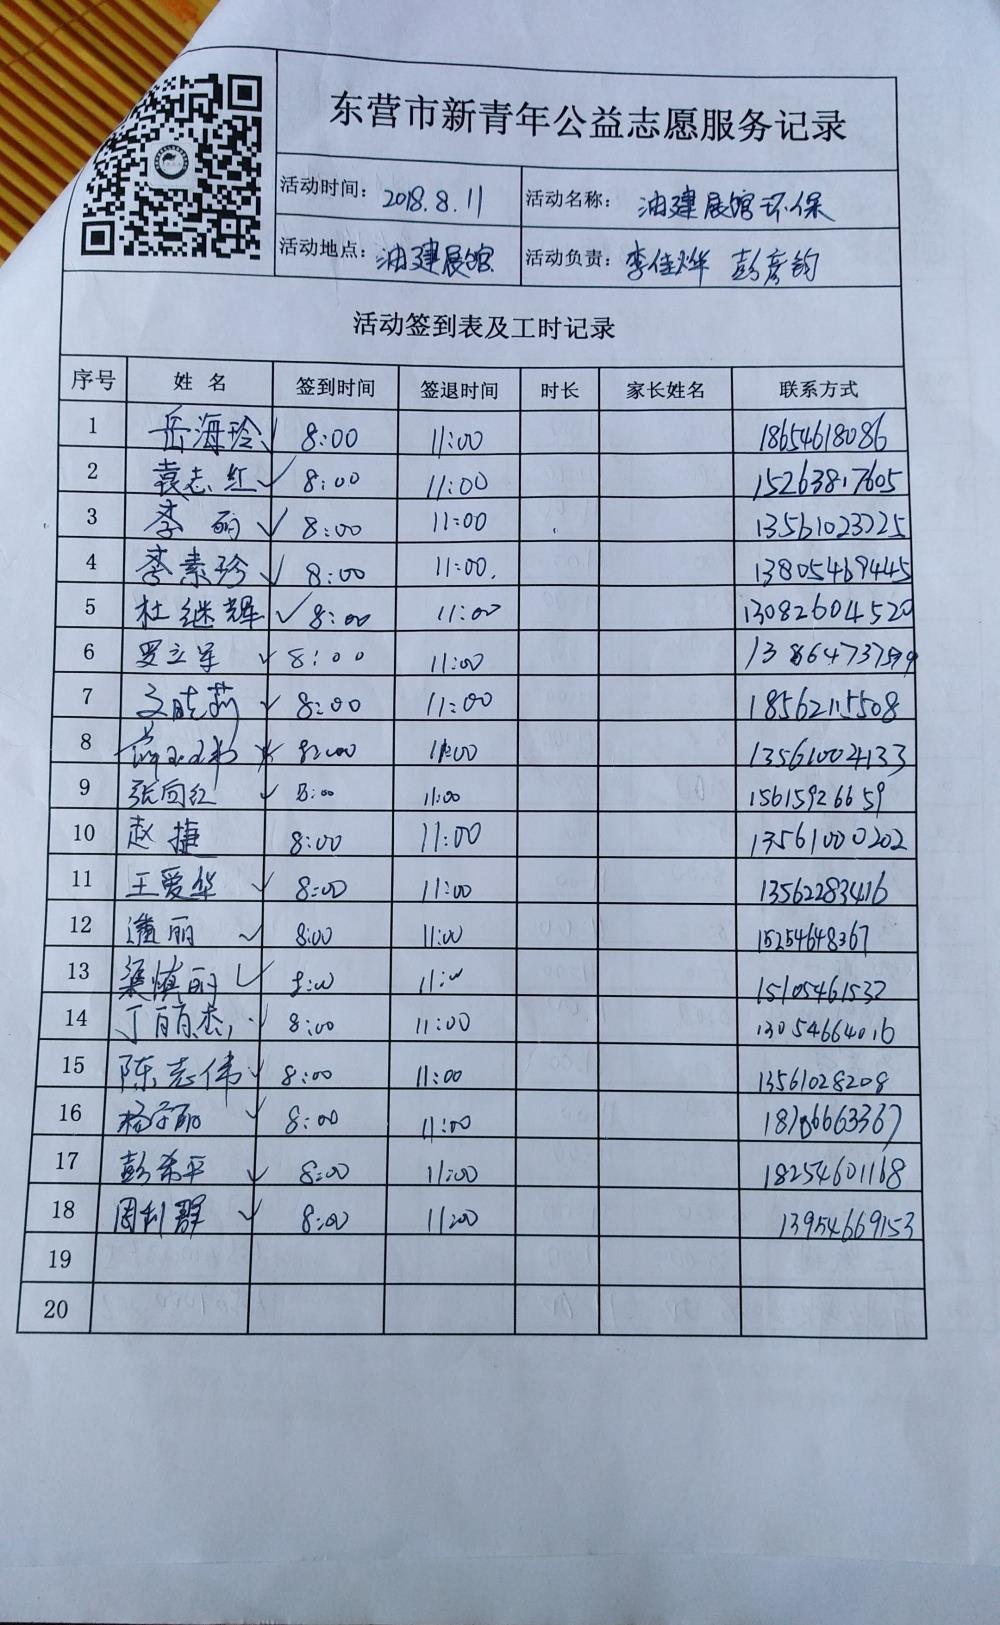 东营市新青年公益志愿服务记录
活动时间： 2018.8.11 活动名称： 油建展馆环保
活动地点： 油建展馆 活动负责： 李佳烨 彭彦钧
活动签到表及工时记录
序号 姓 名 签到时间 签退时间 时长 家长姓名 联系方式
1 岳海玲 8:00 11:00 18654618086
2 袁志红 8:00 11:00 15263817605
3 李 丽 8:00 11:00 13561023225
4 李素珍 8:00 11:00 13805469445
5 杜继辉 8:00 11:00 13082604520
6 罗立军 8:00 11:00
7 文晓莉 8:00 11:00 18562115508
8 8:00 11:00 13561004133
9 张向红 8:00 11:00 15615926659
10 赵捷 8:00 11:00 13561000202
11 王爱华 8:00 11:00 13562283416
12 潘丽 8:00 11:00 15254648367
13 渠慎丽 8:00 11:00 15105461532
14 丁丽杰 8:00 11:00 13054664016
15 陈志伟 8:00 11:00 13561028208
16 8:00 11:00 18706663367
17 彭希平 8:00 11:00 18254601168
18 周利群 8:00 11:00 13954669153
19
20